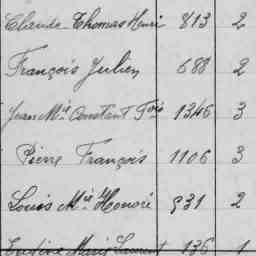 Claude Thomas Henri 813 2
François Julien 688 2
Jean Mie Constant Fois 1346 3
Pierre François 1106 3
Louis Mie Honoré 931 2
Marie Laurent 136 1